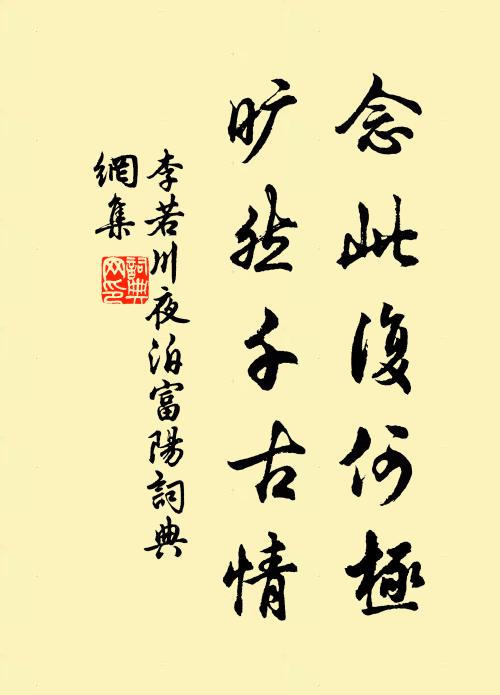 念此復何極
旷然千古情
李若川夜泊富陽詞典
網集
詞典
网印